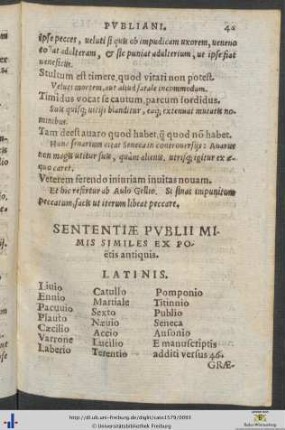 PVBLIANI. 42
ipse peccet, veluti si quis ob impudicam uxorem, veneno
to at adulteram, & sic puniat adulterium, ut ipse fiat
veneficus.
Stultum est timere, quod vitari non potest.
Veluti mortem, aut aliud fatale incommodum.
Timidus vocat se cautum, parcum sordidus.
Suis quisq; vitijs blanditur, eaq; extenuat mutatis no-
minibus.
Tam deest auaro quod habet, q̃ quod nõ habet.
Hunc senarium citat Seneca in controuersijs: Auarus
non magis utitur suis, quàm alienis, utrisq; igitur ex æ-
quo caret.
Veterem ferendo iniuriam inuitas nouam.
Et hic refertur ab Aulo Gellio. Si sinas impunitum
peccatum, facis ut iterum libeat peccare.
SENTENTIÆ PVBLII MI-
MIS SIMILES EX PO-
ëtis antiquis.
LATINIS.
Liuio Catullo Pomponio
Ennio Martiale Titinnio
Pacuuio Sexto Publio
Plauto Næuio Seneca
Cæcilio Accio Ausonio
Varrone Lucilio E manuscriptis
Laberio Terentio additi versus 46.
GRÆ-
http://dl.ub.uni-freiburg.de/diglit/cato1579/0093
© Universitätsbibliothek Freiburg